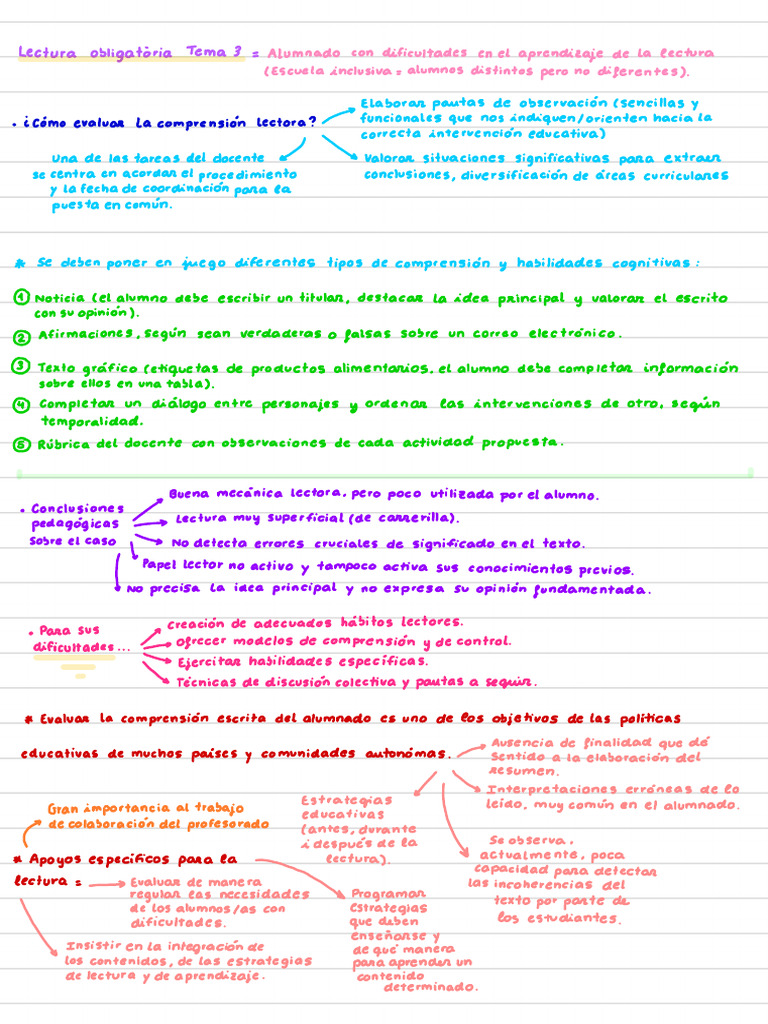 Lectura obligatòria Tema 3 = Alumnado con dificultades en el aprendizaje de la lectura
(Escuela inclusiva = alumnos distintos pero no diferentes).
• ¿Cómo evaluar la comprensión lectora?
Elaborar pautas de observación (sencillas y
funcionales que nos indiquen/orienten hacia la
correcta intervención educativa)
Una de las tareas del docente
se centra en acordar el procedimiento
y la fecha de coordinación para la
puesta en común.
Valorar situaciones significativas para extraer
conclusiones, diversificación de áreas curriculares
* Se deben poner en juego diferentes tipos de comprensión y habilidades cognitivas:
1 Noticia (el alumno debe escribir un titular, destacar la idea principal y valorar el escrito
con su opinión).
2 Afirmaciones, según sean verdaderas o falsas sobre un correo electrónico.
3 Texto gráfico (etiquetas de productos alimentarios, el alumno debe completar información
sobre ellos en una tabla).
4 Completar un diálogo entre personajes y ordenar las intervenciones de otro, según
temporalidad.
5 Rúbrica del docente con observaciones de cada actividad propuesta.
• Conclusiones
pedagógicas
sobre el caso
Buena mecánica lectora, pero poco utilizada por el alumno.
Lectura muy superficial (de carrerilla).
No detecta errores cruciales de significado en el texto.
Papel lector no activo y tampoco activa sus conocimientos previos.
No precisa la idea principal y no expresa su opinión fundamentada.
• Para sus
dificultades...
Creación de adecuados hábitos lectores.
Ofrecer modelos de comprensión y de control.
Ejercitar habilidades específicas.
Técnicas de discusión colectiva y pautas a seguir.
* Evaluar la comprensión escrita del alumnado es uno de los objetivos de las políticas
educativas de muchos países y comunidades autonómas.
Ausencia de finalidad que dé
sentido a la elaboración del
resumen.
Interpretaciones erróneas de lo
leído, muy común en el alumnado.
Se observa,
actualmente, poca
capacidad para detectar
las incoherencias del
texto por parte de
los estudiantes.
Estrategias
educativas
(antes, durante
i después de la
lectura).
Gran importancia al trabajo
de colaboración del profesorado
* Apoyos específicos para la
lectura =
Evaluar de manera
regular las necesidades
de los alumnos/as con
dificultades.
Programar
estrategias
que deben
enseñarse y
de qué manera
para aprender un
contenido
determinado.
Insistir en la integración de
los contenidos, de las estrategias
de lectura y de aprendizaje.